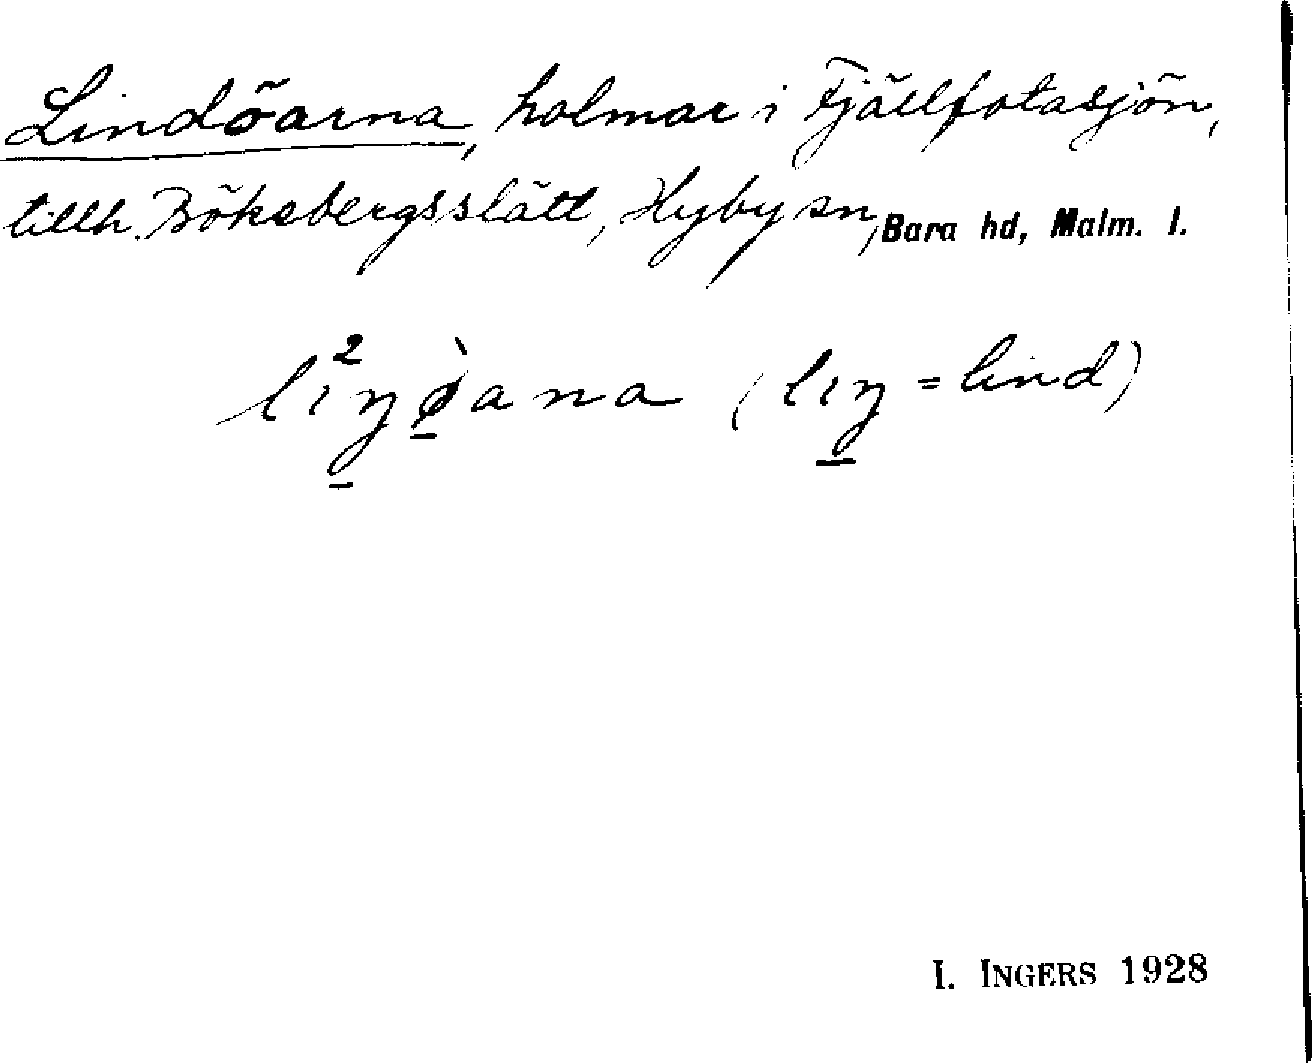 Lindöarna, holmar i Fjällfotasjön,
tillh. Bökebergsslätt, Hyby sn, Bara hd, Malm. l.
(lıŋ = lind)
I. INGERS 1928